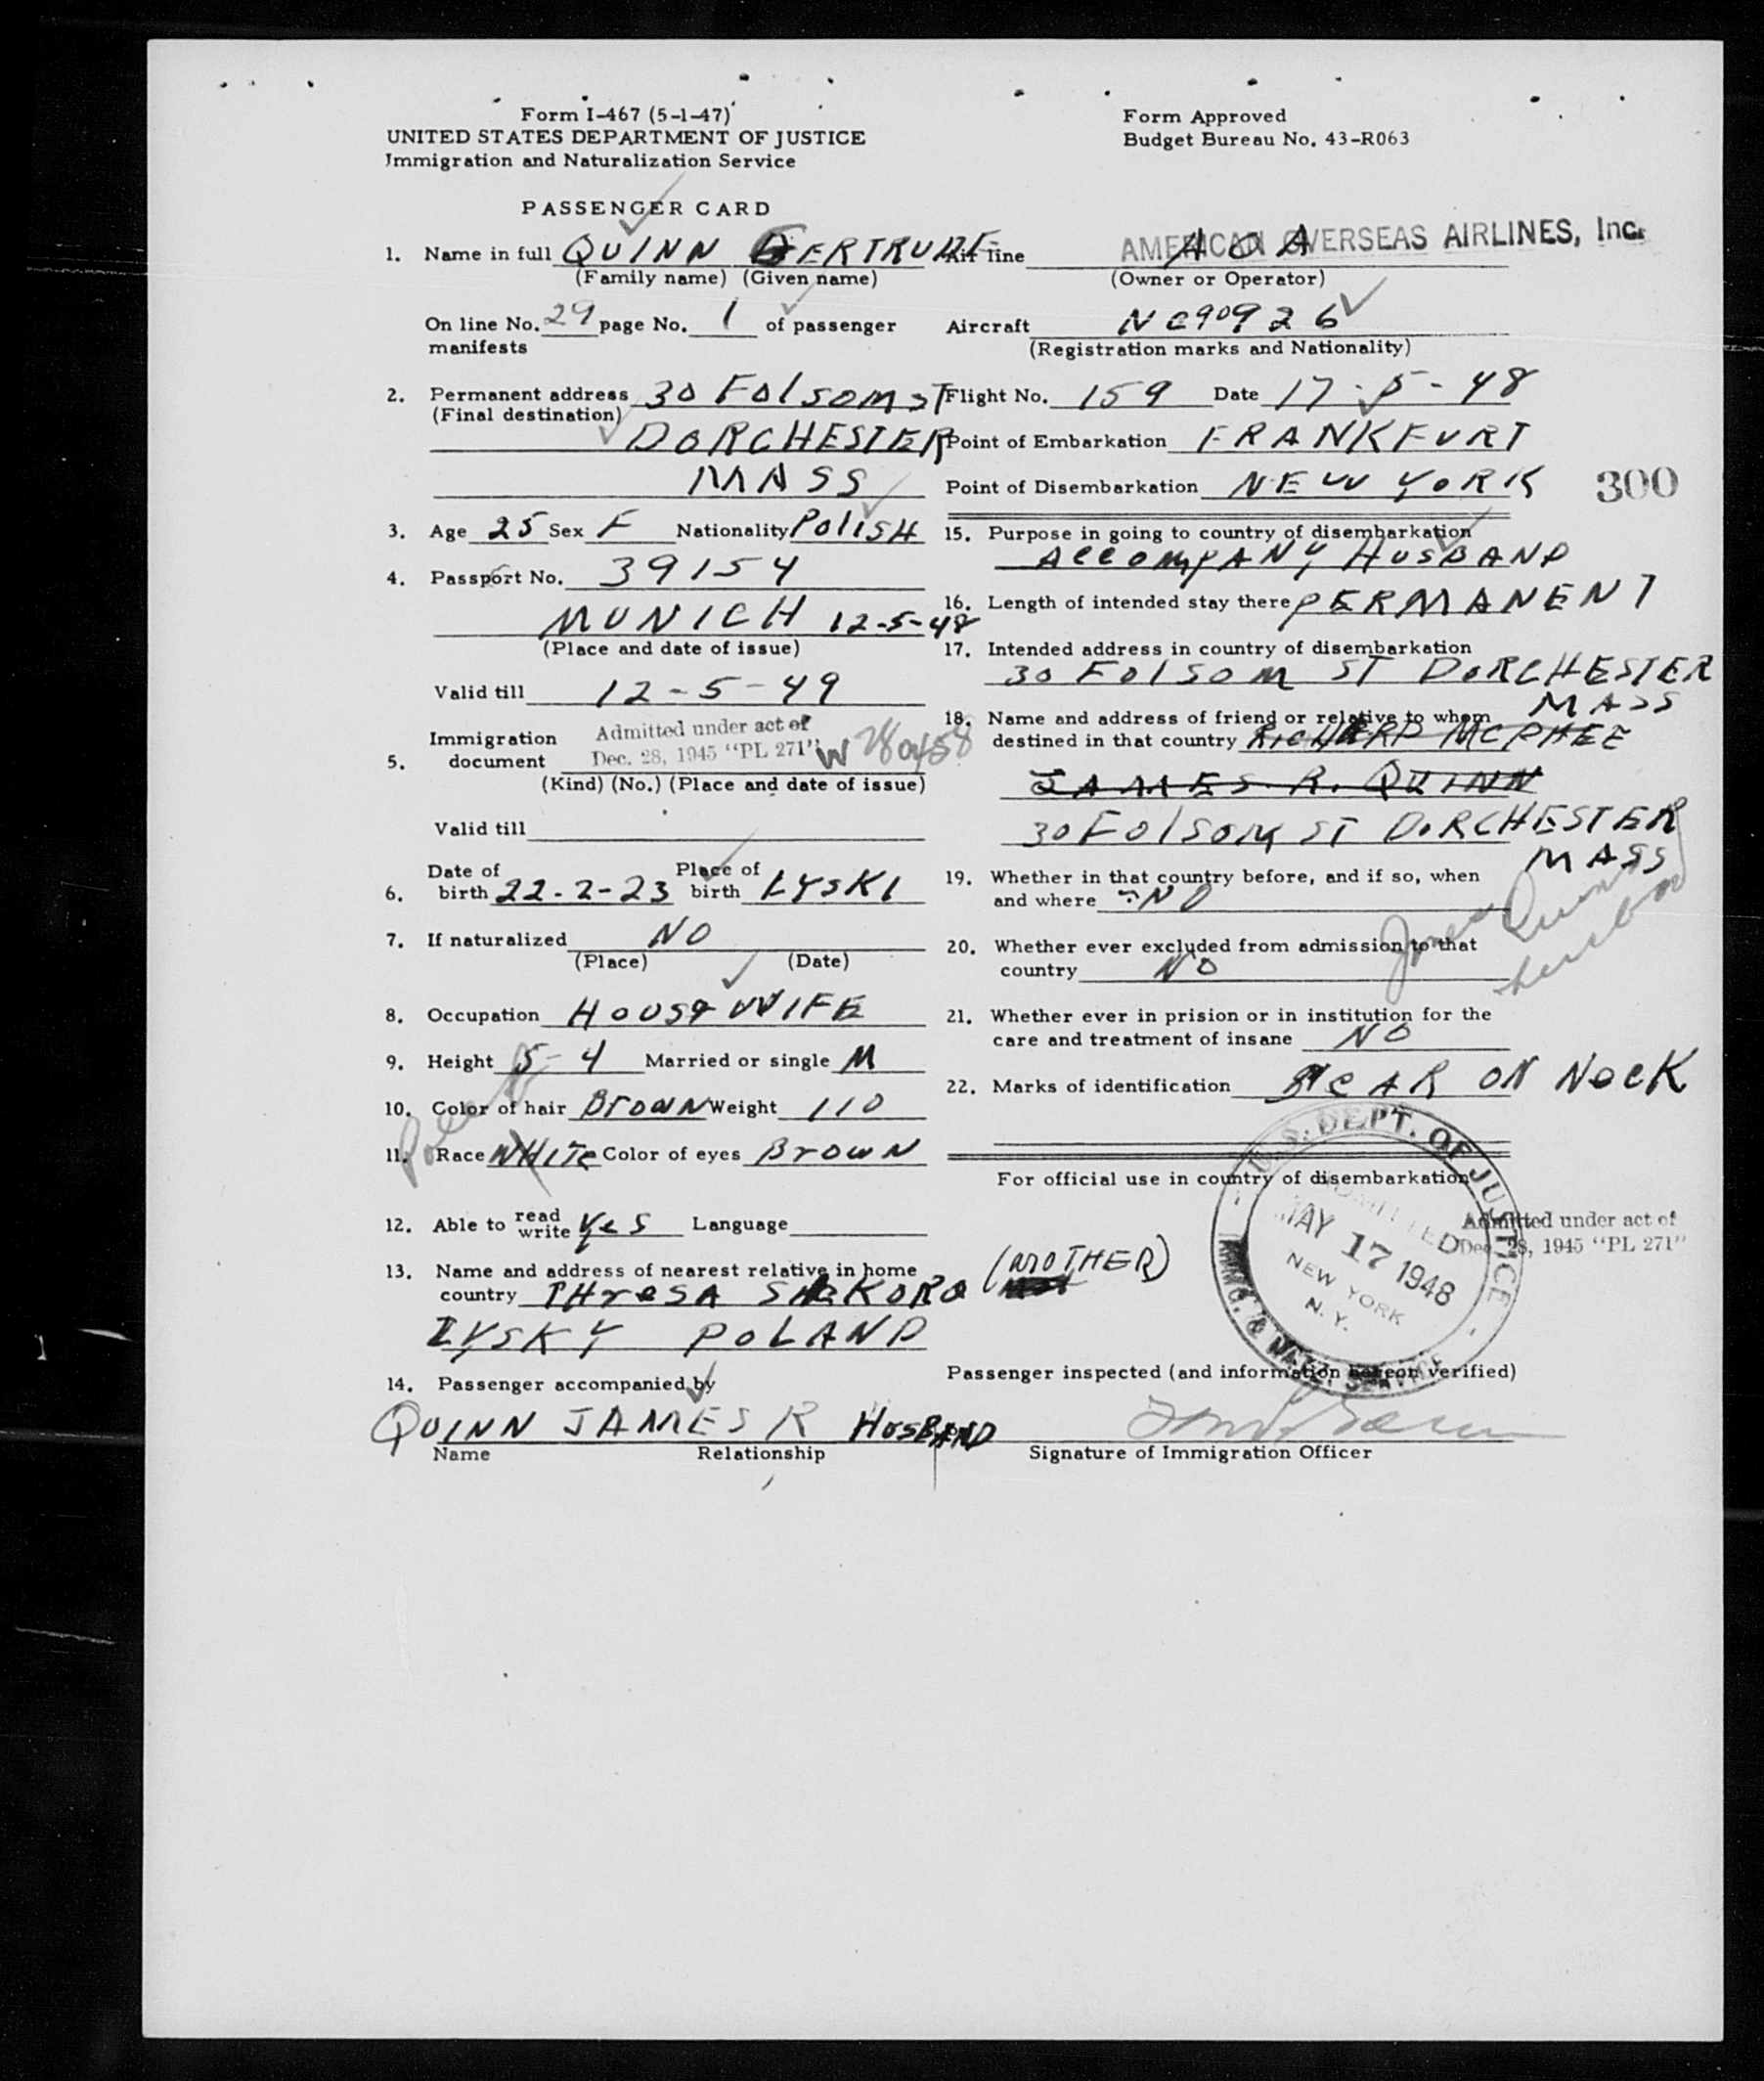 Form I-467 (5-1-47)
UNITED STATES DEPARTMENT OF JUSTICE
Immigration and Naturalization Service
Form Approved
Budget Bureau No. 43-R063
PASSENGER CARD
1. Name in full QUINN GERTRUDE
(Family name) (Given name)
On line No. 29 page No. 1 of passenger
manifests
2. Permanent address 30 Folsom ST
(Final destination)
DORCHESTER
MASS
3. Age 25 Sex F Nationality POLISH
4. Passport No. 39154
MUNICH 12-5-48
(Place and date of issue)
Valid till 12-5-49
Admitted under act of
Immigration
5. document Dec. 28, 1945 "PL 271"
(Kind) (No.) (Place and date of issue)
Valid till
Date of Place of
6. birth 22-2-23 birth LYSKI
7. If naturalized NO
(Place) (Date)
8. Occupation HOUSEWIFE
9. Height 5-4 Married or single M
10. Color of hair Brown Weight 110
11. Race WHITE Color of eyes Brown
12. Able to read write Yes Language
13. Name and address of nearest relative in home
country THreSA (MOTHER)
LYSKY POLAND
14. Passenger accompanied by
QUINN JAMES R HUSBAND
Name Relationship
Air line AOA
AMERICAN OVERSEAS AIRLINES, Inc.
(Owner or Operator)
Aircraft NC90926
(Registration marks and Nationality)
Flight No. 159 Date 17-5-48
Point of Embarkation FRANKFURT
Point of Disembarkation NEW YORK
300
15. Purpose in going to country of disembarkation
ACCOMPANY HUSBAND
16. Length of intended stay there PERMANENT
17. Intended address in country of disembarkation
30 Folsom ST DORCHESTER
MASS
18. Name and address of friend or relative to whom
destined in that country RICHARD MCPHEE
JAMES R. QUINN
30 Folsom ST DORCHESTER
MASS
James Quinn
husband
19. Whether in that country before, and if so, when
and where NO
20. Whether ever excluded from admission to that
country NO
21. Whether ever in prision or in institution for the
care and treatment of insane NO
22. Marks of identification SCAR ON NECK
For official use in country of disembarkation
U.S. DEPT. OF JUSTICE
ADMITTED
MAY 17 1948
NEW YORK
N.Y.
IMMG. & NATZ. SERVICE
Admitted under act of
Dec. 28, 1945 "PL 271"
Passenger inspected (and information hereon verified)
Signature of Immigration Officer